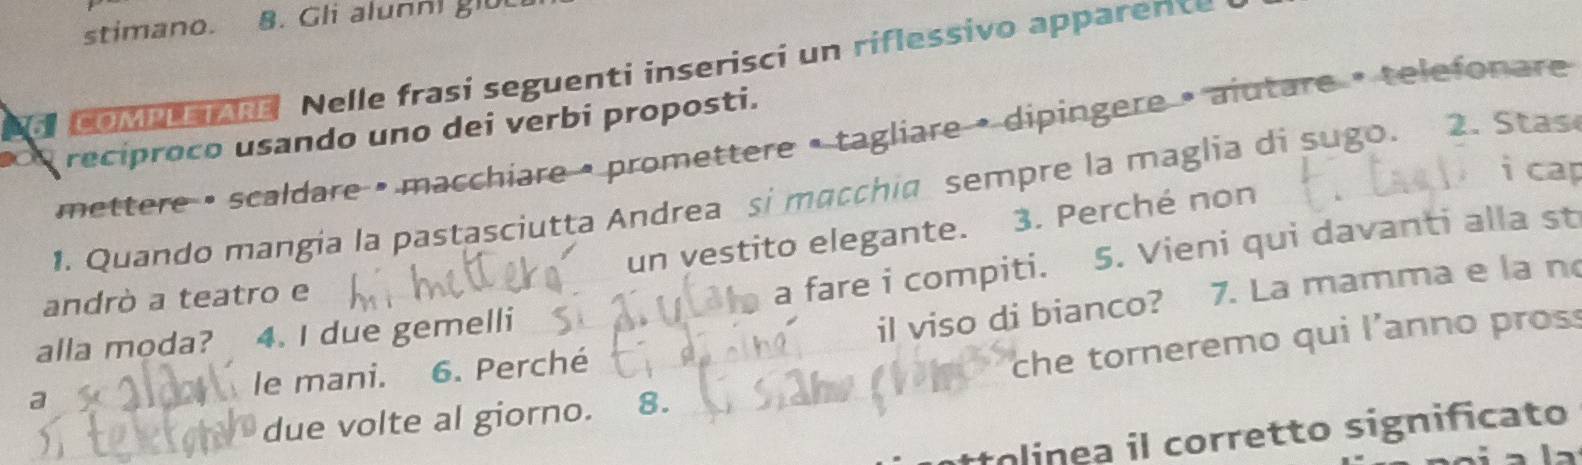 stimano. 8. Gli alunni
COMPLETARE Nelle frasi seguenti inserisci un riflessivo apparente o
reciproco usando uno dei verbi proposti.
mettere • scaldare • macchiare • promettere • tagliare • dipingere • aiutare • telefonare
1. Quando mangia la pastasciutta Andrea si macchia sempre la maglia di sugo. 2. Stas
andrò a teatro e mi metterò un vestito elegante. 3. Perché non ti tagli i cap
alla moda? 4. I due gemelli si aiutano a fare i compiti. 5. Vieni qui davanti alla st
a scaldarti le mani. 6. Perché ti il viso di bianco? 7. La mamma e la no
si telefonano due volte al giorno. 8. ci siamo che torneremo qui l'anno pross
sottolinea il corretto significato